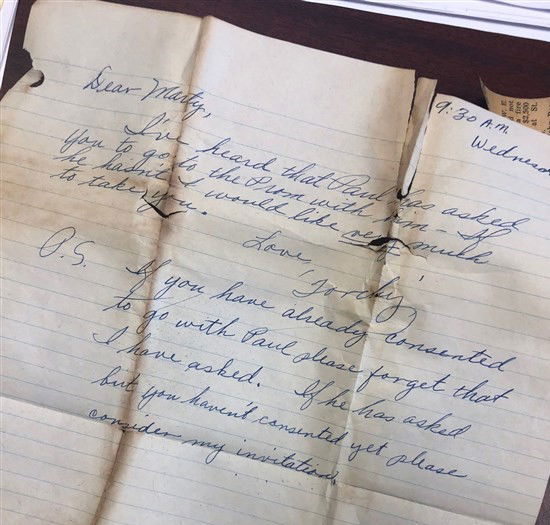 9:30 A.M.
Wednes
Dear Marty,
I've heard that Paul has asked
you to go to the Prom with him – If
he hasn't I would like very much
to take you.
Love,
Torchy
P.S. If you have already consented
to go with Paul please forget that
I have asked. If he has asked
but you haven't consented yet please
consider my invitation.